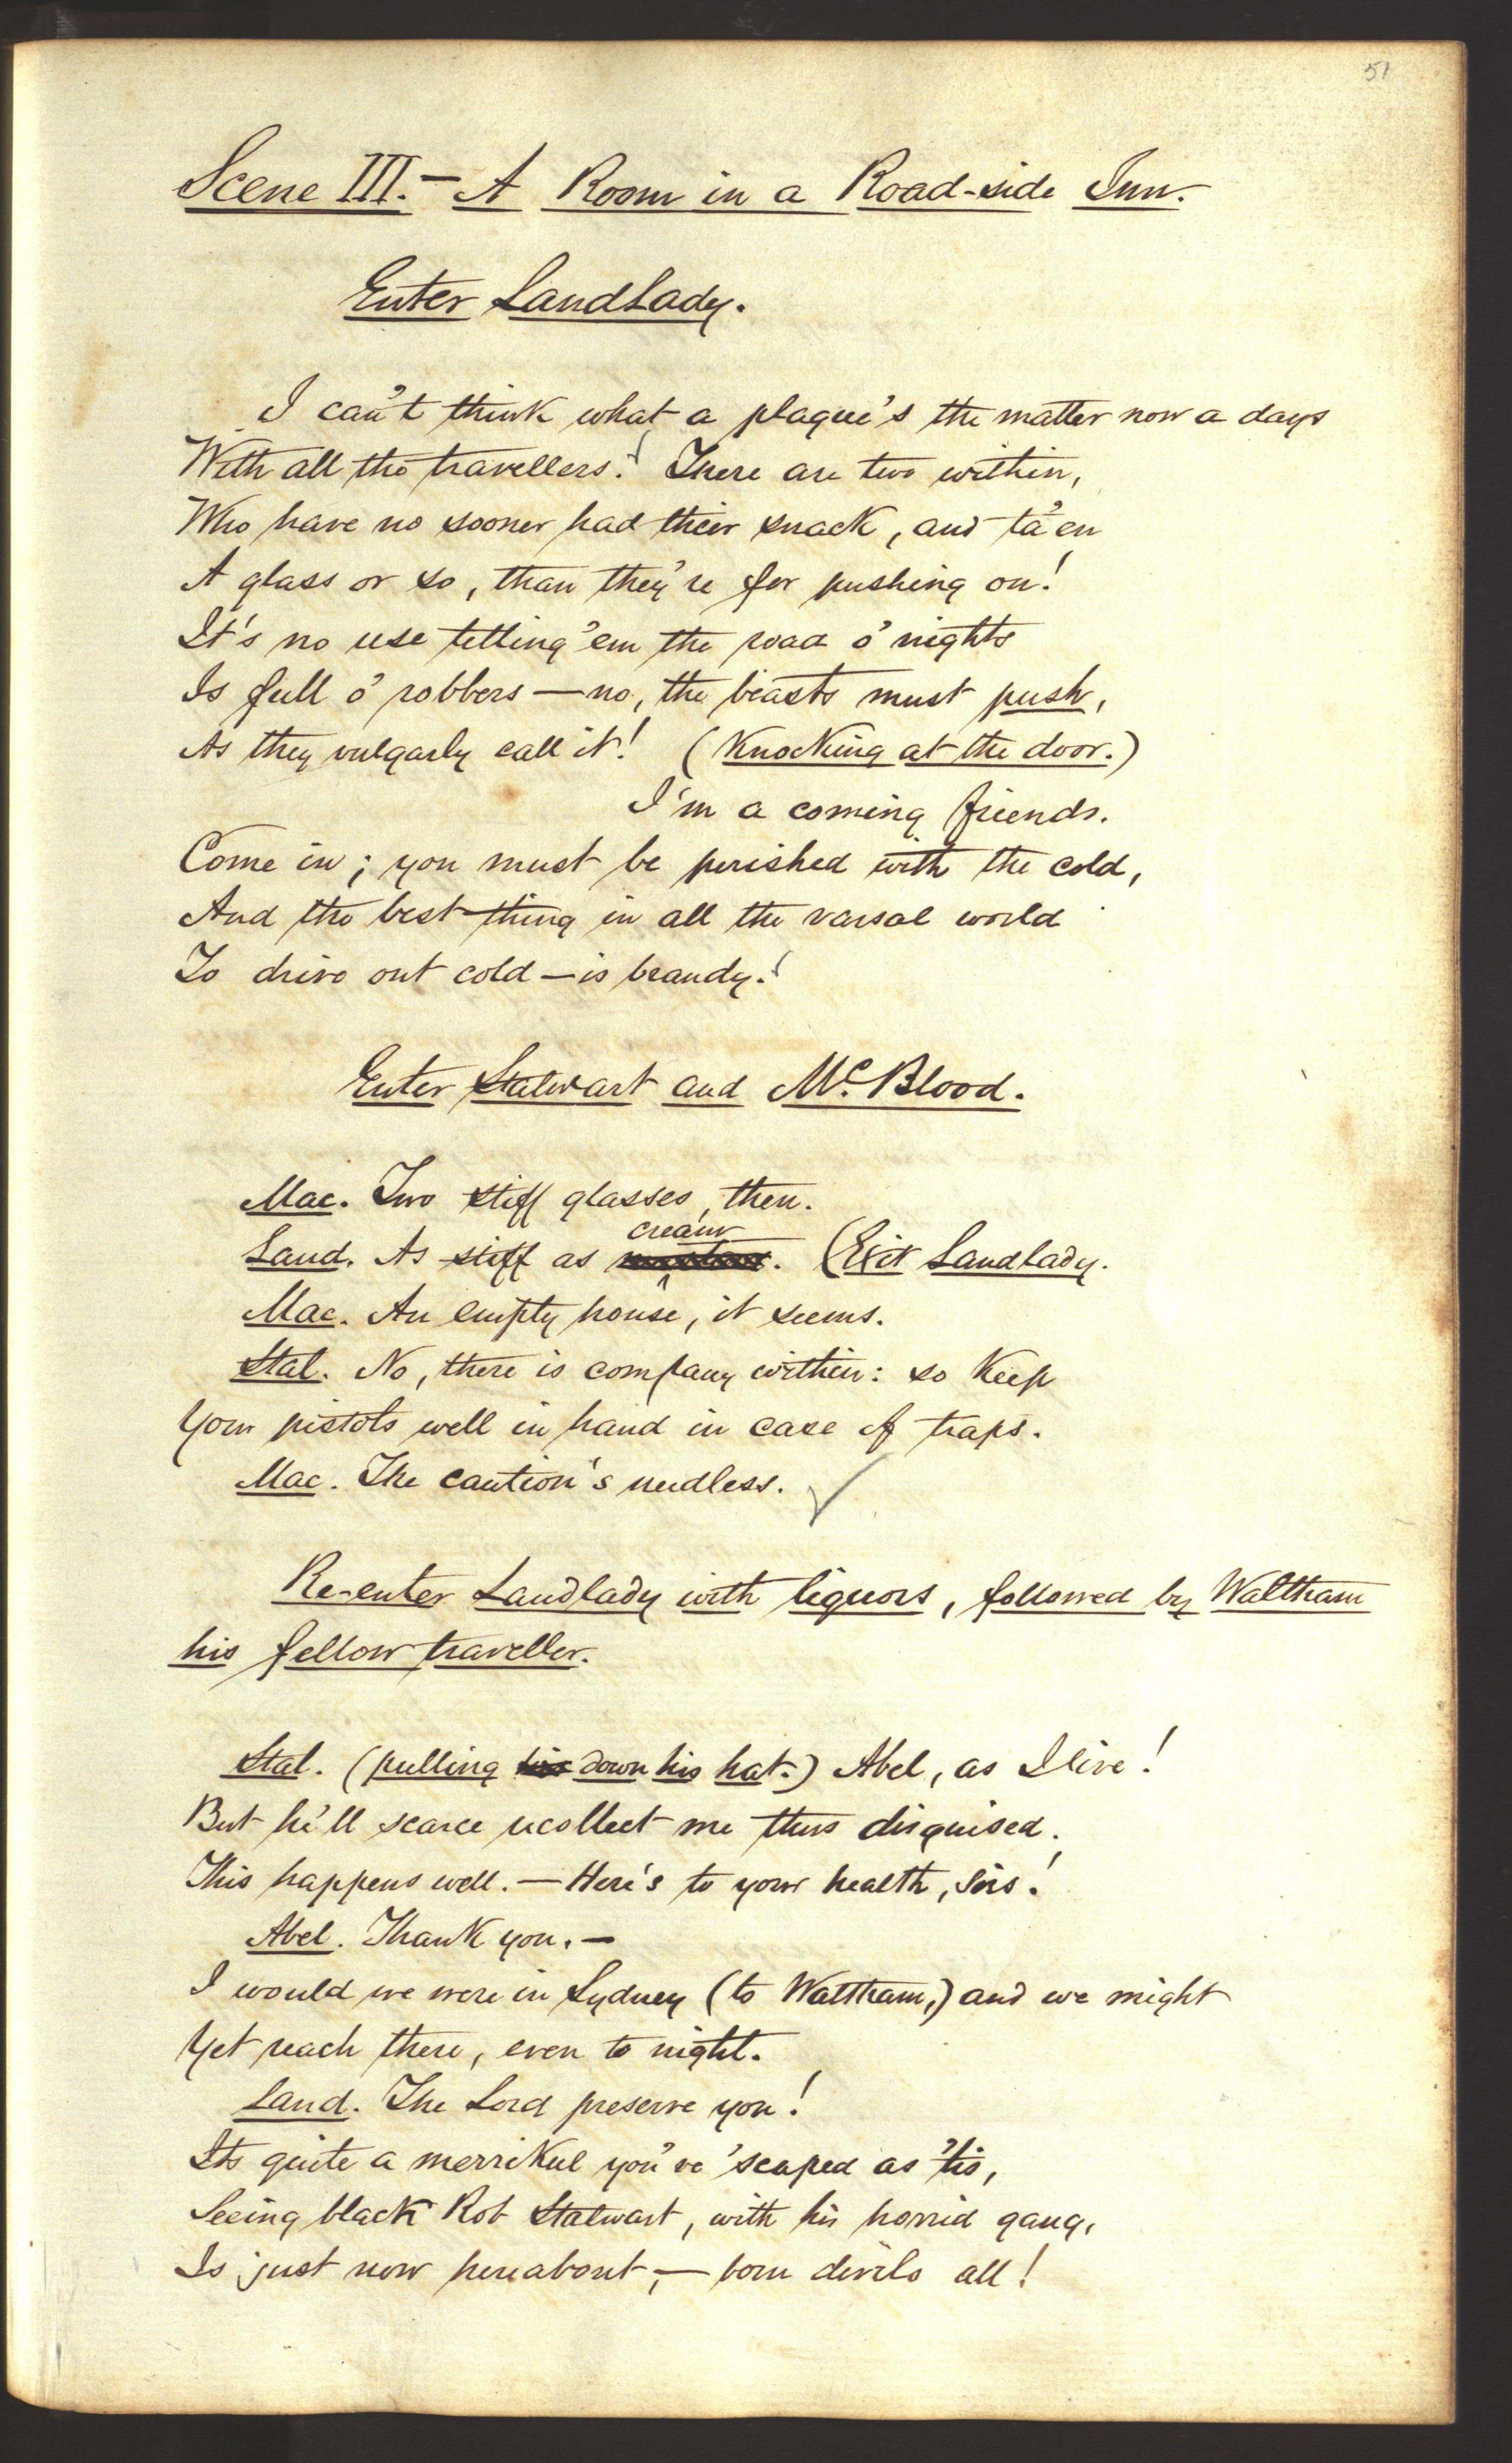 51
Scene III.— A Room in a Road-side Inn.
Enter LandLady.
I can't think what a plague's the matter now a days
With all the travellers! There are two within,
Who have no sooner had their snack, and ta'en
A glass or so, than they're for pushing on!
It's no use telling 'em the road o' nights
Is full o' robbers — no, the beasts must push,
As they vulgarly call it! (Knocking at the door.)
I'm a coming friends.
Come in; you must be perished with the cold,
And the best thing in all the varsal world
To drive out cold — is brandy!
Enter Stalwart and Mc. Blood.
Mac. Two stiff glasses, then.
cream
Land. As stiff as . (Exit Landlady.
Mac. An empty house, it seems.
Stal. No, there is company within: so keep
Your pistols well in hand in case of traps.
Mac. The caution's needless.
Re-enter Landlady with liquors, followed by Waltham
his fellow traveller.
Stal. (pulling his down his hat.) Abel, as I live!
But he'll scarce recollect me thus disguised.
This happens well. — Here's to your health, Sirs!
Abel. Thank you. —
I would we were in Sydney (to Waltham,) and we might
Yet reach there, even to night.
Land. The Lord preserve you!
Its quite a merrikul you've 'scaped as 'tis,
Seeing black Rob Stalwart, with his horrid gang,
Is just now hereabout; — born devils all!